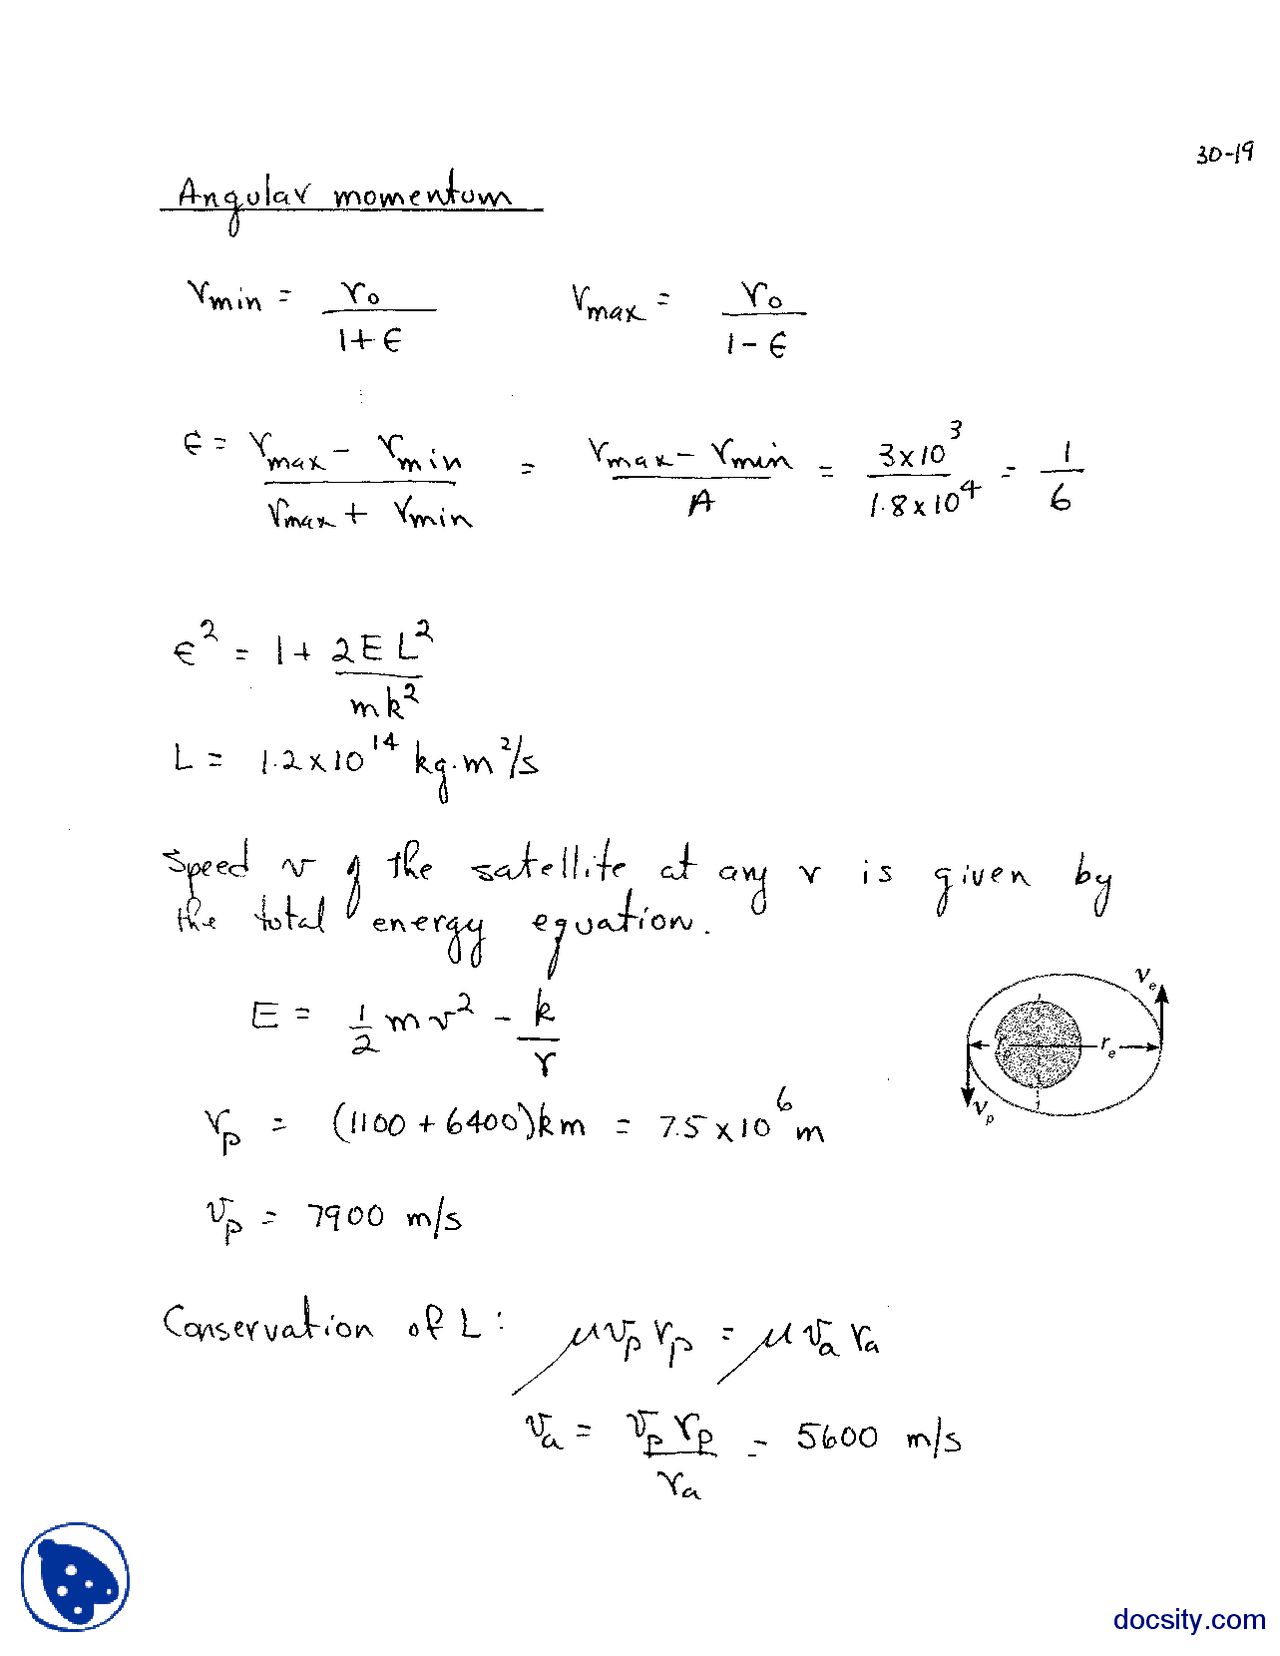 30-19
Angular momentum
r_min = r_0 / (1 + ε)    r_max = r_0 / (1 - ε)
ε = (r_max - r_min) / (r_max + r_min) = (r_max - r_min) / A = 3x10^3 / 1.8x10^4 = 1/6
ε^2 = 1 + 2EL^2 / mk^2
L = 1.2x10^14 kg.m^2/s
Speed v of the satellite at any r is given by
the total energy equation.
E = 1/2 mv^2 - k/r
v_e
r_e
v_p
r_p = (1100 + 6400)km = 7.5x10^6 m
v_p = 7900 m/s
Conservation of L: μ v_p r_p = μ v_a r_a
v_a = v_p r_p / r_a = 5600 m/s
docsity.com